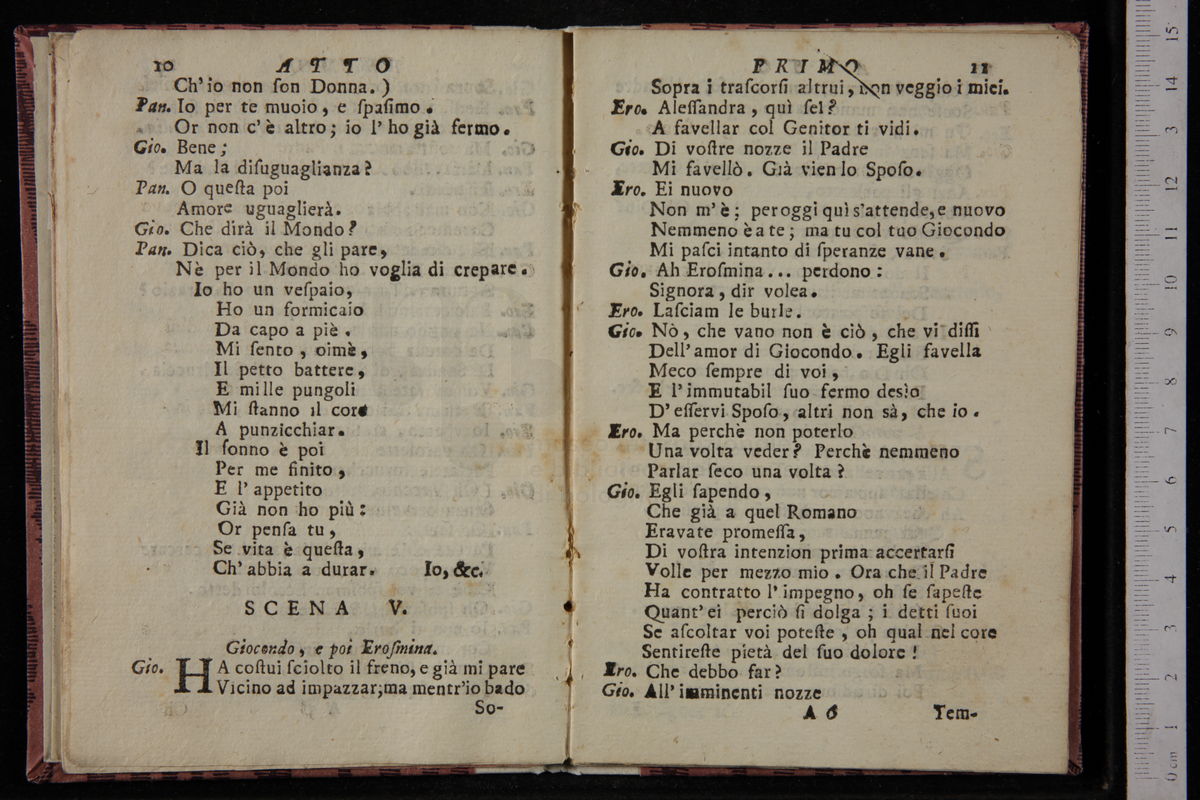 10 ATTO
Ch' io non ſon Donna. )
Pan. Io per te muoio, e ſpaſimo.
Or non c'è altro; io l' ho già fermo.
Gio. Bene;
Ma la diſuguaglianza?
Pan. O queſta poi
Amore uguaglierà.
Gio. Che dirà il Mondo?
Pan. Dica ciò, che gli pare,
Nè per il Mondo ho voglia di crepare.
Io ho un veſpaio,
Ho un formicaio
Da capo a piè.
Mi ſento, oimè,
Il petto battere,
E mille pungoli
Mi ſtanno il core
A punzicchiar.
Il ſonno è poi
Per me finito,
E l' appetito
Già non ho più:
Or penſa tu,
Se vita è queſta,
Ch' abbia a durar. Io, &c.
SCENA V.
Giocondo, e poi Eroſmina.
Gio. HA coſtui ſciolto il freno, e già mi pare
Vicino ad impazzar; ma mentr'io bado
So-
PRIMO 11
Sopra i traſcorſi altrui, non veggio i miei.
Ero. Aleſſandra, quì ſei?
A favellar col Genitor ti vidi.
Gio. Di voſtre nozze il Padre
Mi favellò. Già vien lo Spoſo.
Ero. Ei nuovo
Non m'è; per oggi quì s'attende, e nuovo
Nemmeno è a te; ma tu col tuo Giocondo
Mi paſci intanto di ſperanze vane.
Gio. Ah Eroſmina... perdono:
Signora, dir volea.
Ero. Laſciam le burle.
Gio. Nò, che vano non è ciò, che vi diſſi
Dell' amor di Giocondo. Egli favella
Meco ſempre di voi,
E l' immutabil ſuo fermo desìo
D' eſſervi Spoſo, altri non sà, che io.
Ero. Ma perchè non poterlo
Una volta veder? Perchè nemmeno
Parlar ſeco una volta?
Gio. Egli ſapendo,
Che già a quel Romano
Eravate promeſſa,
Di voſtra intenzion prima accertarſi
Volle per mezzo mio. Ora che il Padre
Ha contratto l' impegno, oh ſe ſapeſte
Quant' ei perciò ſi dolga; i detti ſuoi
Se aſcoltar voi poteſte, oh qual nel core
Sentireſte pietà del ſuo dolore!
Ero. Che debbo far?
Gio. All' imminenti nozze
A 6 Tem-
15
14
13
12
11
10
9
8
7
6
5
4
3
2
1
0 cm